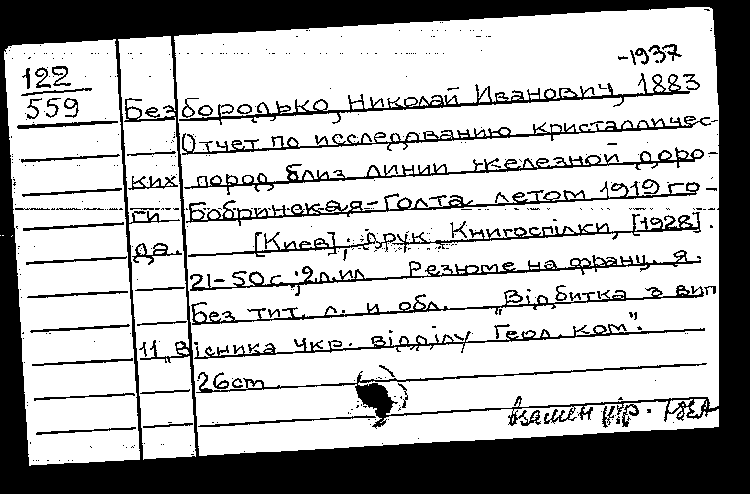 -1937
122
559 Безбородько, Николай Иванович, 1883
Отчет по исследованию кристалличес-
ких пород близ линии железной доро-
ги Бобринская-Голта летом 1919 го-
да. [Киев]; друк. Книгоспілки, [1928].
21-50 с.; 2 л. ил Резюме на франц. я.
Без тит. л. и обл. „Відбитка з вип
11 „Вісника Укр. відділу Геол. ком".
26 см
взамен